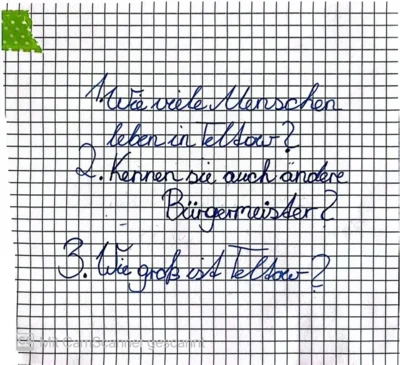 1. Wie viele Menschen
leben in Teltow?
2. Kennen sie auch andere
Bürgermeister?
3. Wie groß ist Teltow?
Mit CamScanner gescannt